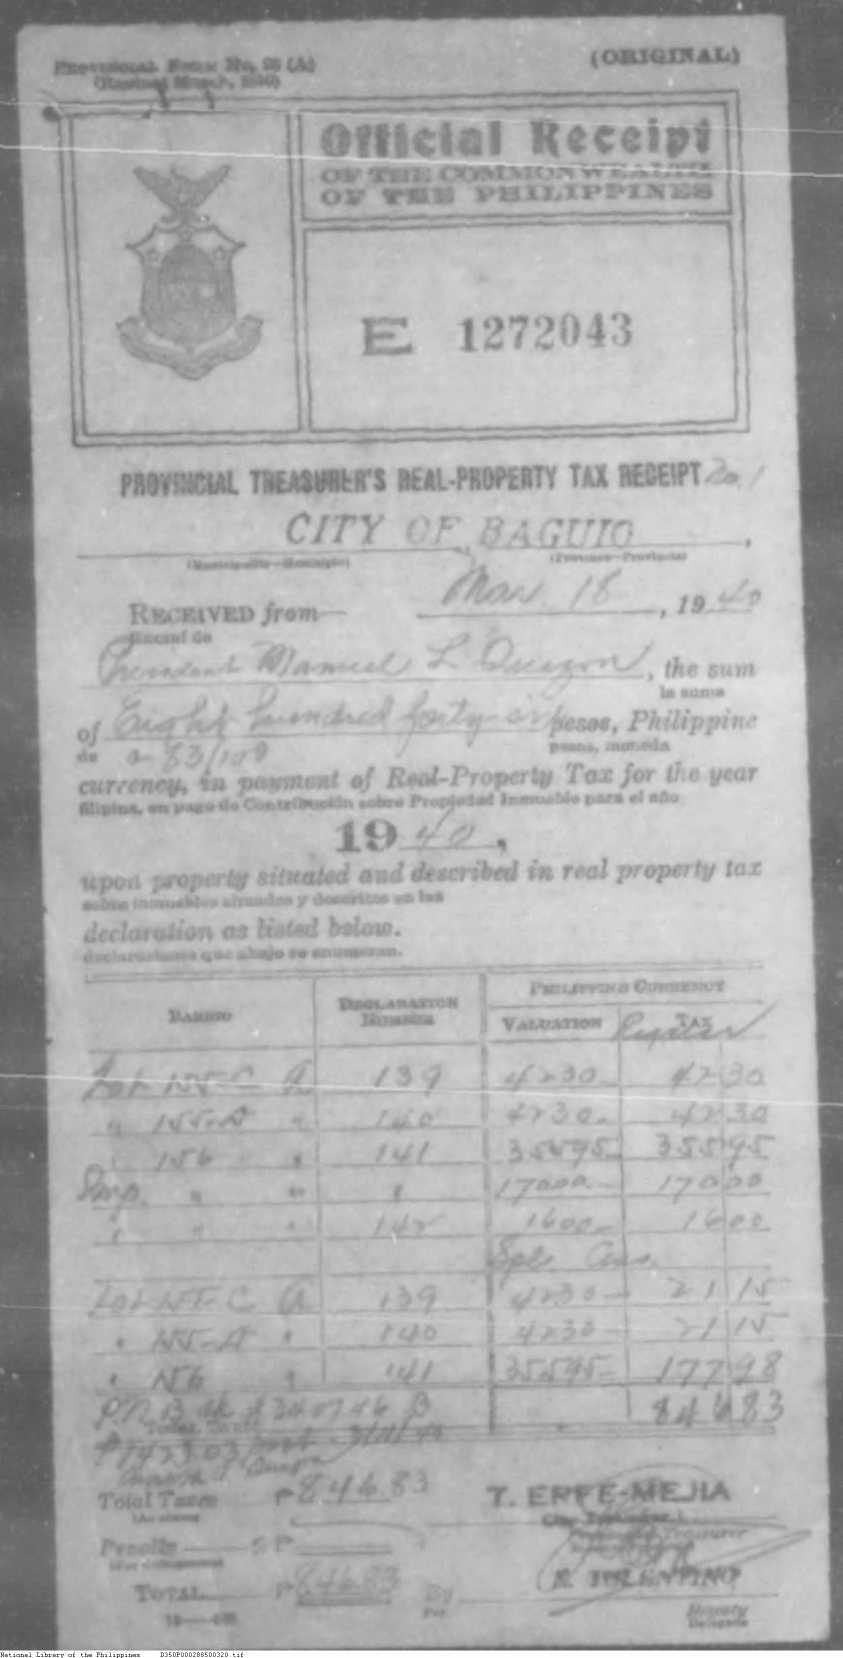 Provincial Form No. 25 (A)
(Revised March, 1940)
(ORIGINAL)
Official Receipt
OF THE COMMONWEALTH
OF THE PHILIPPINES
E 1272043
PROVINCIAL TREASURER'S REAL-PROPERTY TAX RECEIPT No. 1
CITY OF BAGUIO,
(Municipality—Municipio) (Province—Provincia)
Mar. 18, 1940
RECEIVED from
Recibí de
President Manuel L Quezon, the sum
la suma
of Eight hundred forty-six pesos, Philippine
de & 83/100 pesos, moneda
currency, in payment of Real-Property Tax for the year
filipina, en pago de Contribución sobre Propiedad Inmueble para el año
1940,
upon property situated and described in real property tax
sobre inmuebles situados y descritos en las
declaration as listed below.
declaraciones que abajo se enumeran.
BARRIO DECLARATION NUMBER PHILIPPINE CURRENCY
VALUATION TAX
Lot 155-C A 139 4230- 42 30
" 155-A " 140 4230- 42 30
" 156 " 141 35595- 355 95
Imp. " " " 17000- 170 00
" " " 142 1600- 16 00
Spl.
Lot 155-C A 139 4230- 21 15
" 155-A " 140 4230- 21 15
" 156 " 141 35595- 177 98
846 83
Total Taxes ₱ 846.83
Penalty ₱
TOTAL ₱ 846.83
T. ERFE-MEJIA
Treasurer
By
Por
TOLENTINO
Deputy
Delegado
National Library of the Philippines D350P000288500320.tif